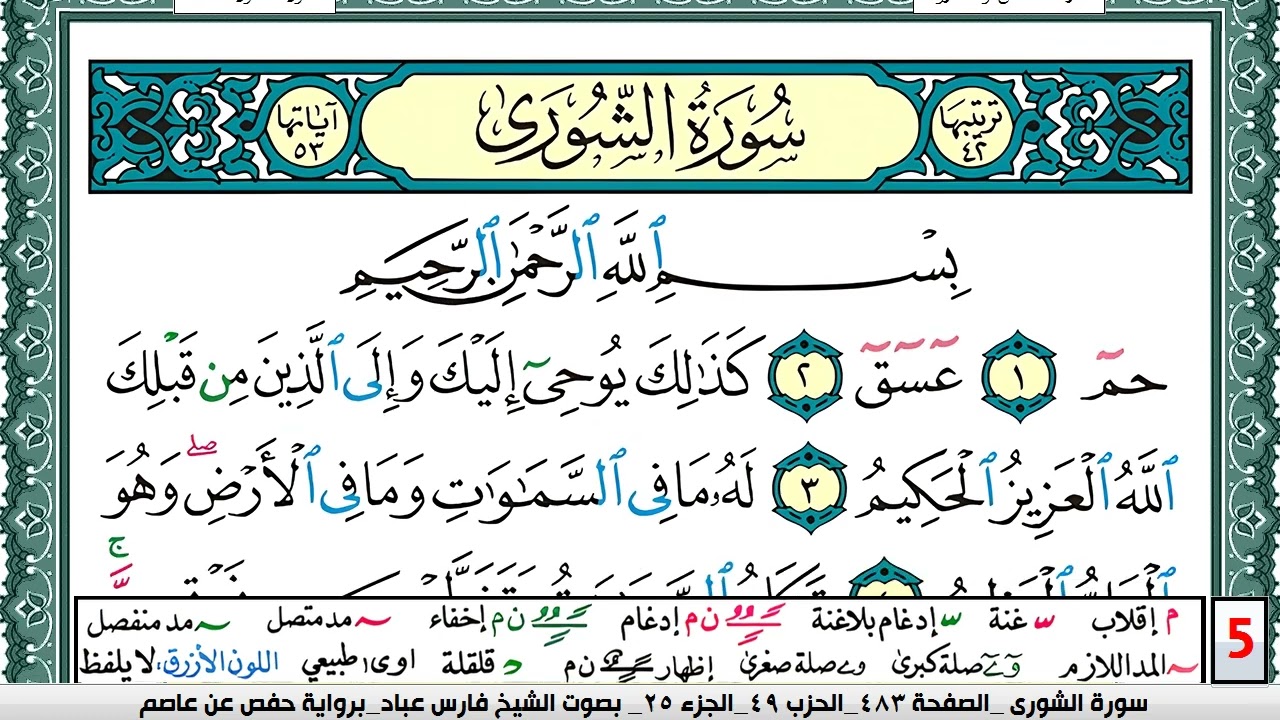 ترتيبها ٤٢ سُورَةُ الشُّورَىٰ آياتها ٥٣
بِسْمِ ٱللَّهِ ٱلرَّحْمَٰنِ ٱلرَّحِيمِ
حمٓ ١ عٓسٓقٓ ٢ كَذَٰلِكَ يُوحِىٓ إِلَيْكَ وَإِلَى ٱلَّذِينَ مِن قَبْلِكَ
ٱللَّهُ ٱلْعَزِيزُ ٱلْحَكِيمُ ٣ لَهُۥ مَا فِى ٱلسَّمَٰوَٰتِ وَمَا فِى ٱلْأَرْضِ ۖ وَهُوَ
م إقلاب س غنة س إدغام بلاغنة ن م إدغام ن م إخفاء مد متصل مد منفصل
المد اللازم صلة كبرى صلة صغرى إظهار ن م د قلقلة اوى طبيعي اللون الأزرق: لا يلفظ
5
سورة الشورى _الصفحة ٤٨٣_الحزب ٤٩_الجزء ٢٥_ بصوت الشيخ فارس عباد_برواية حفص عن عاصم